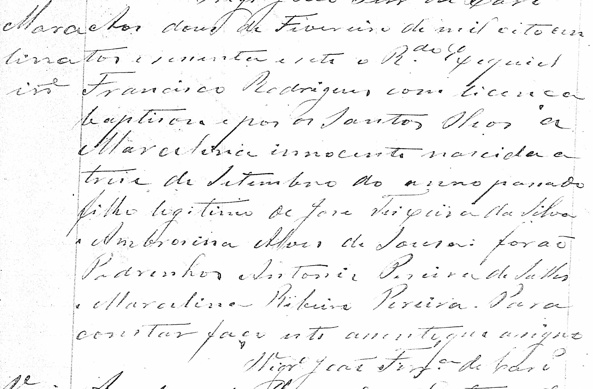 Marce Aos dous de Fevereiro de mil oito cen
lina tos e sesenta e sete o R.do Ezequiel
in.e Francisco Rodrigues com licença
baptisou e pos os Santos Oleos a
Marcelina innocente nascida a
trese de Setembro do anno passado
filha legitima de Jose Teixeira da Silva
e Ambrosina Alves de Sousa: forão
Padrinhos Antonio Pereira de Salles
e Marcelina Ribeira Pereira. Para
constar faço este assento que assigno
Vigr.o João Ferr.a de